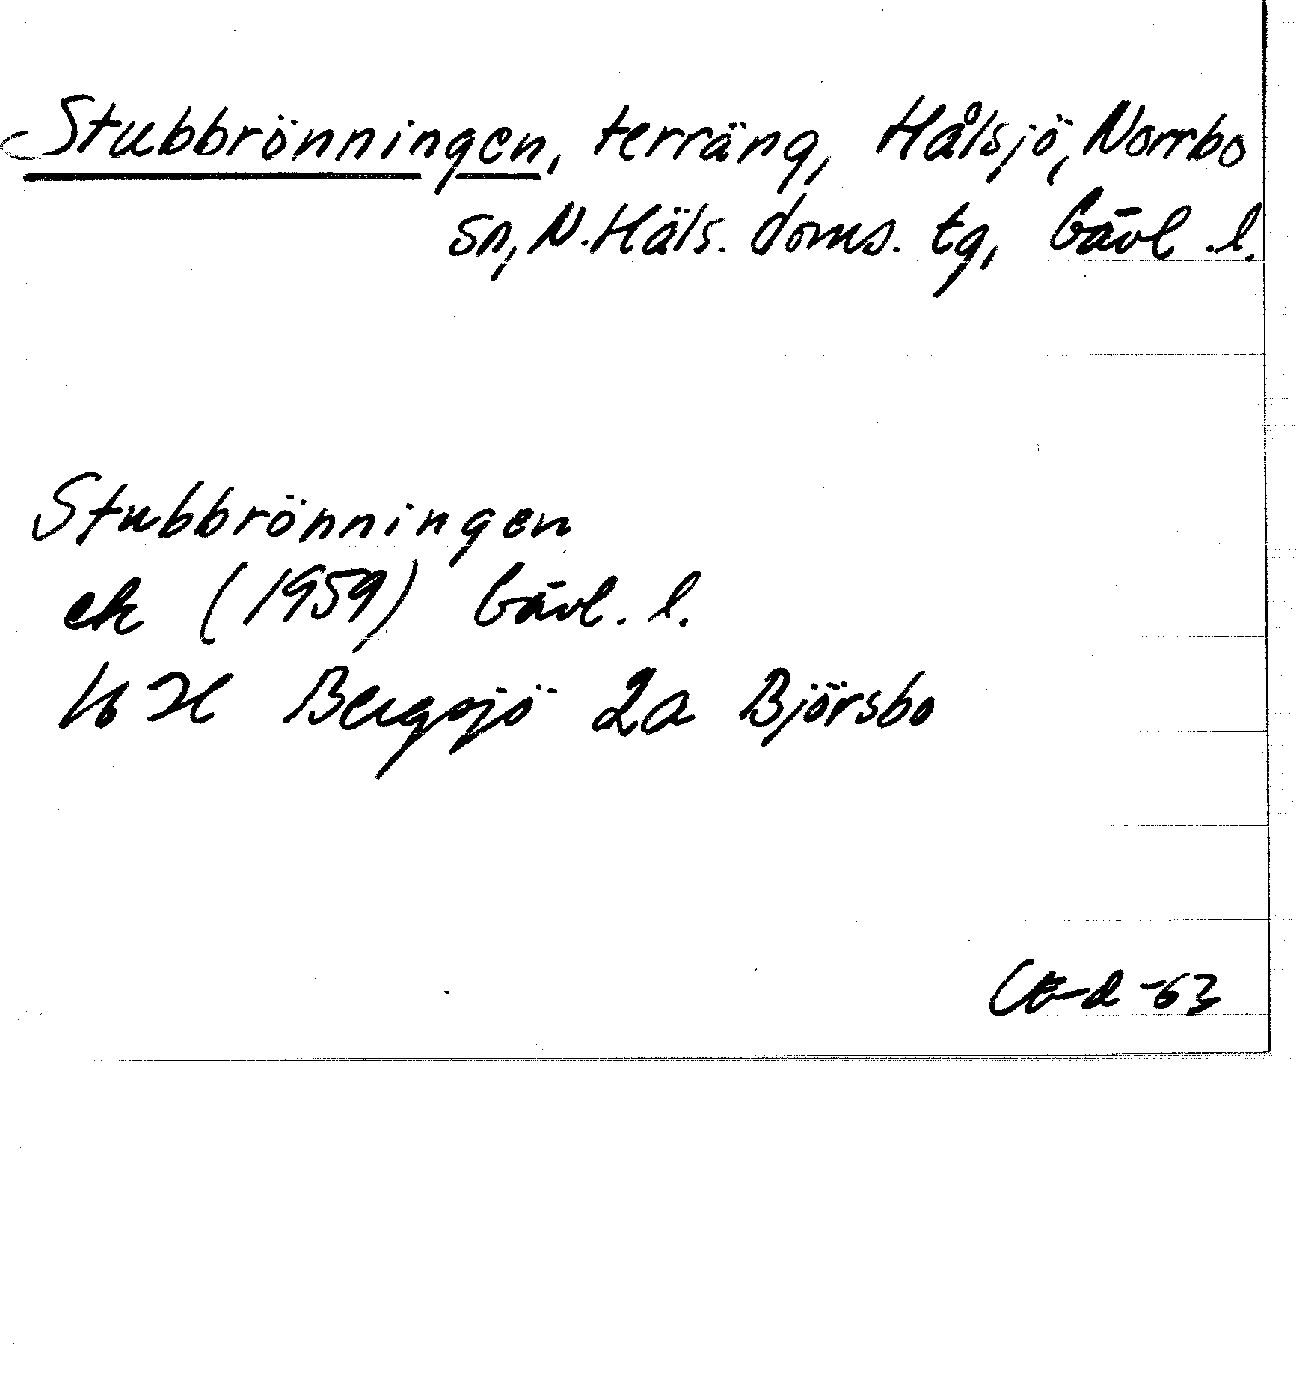 Stubbrönningen, terräng, Hålsjö, Norrbo
sn, N. Häls. doms. tg, Gävl. l.
Stubbrönningen
ek (1959) Gävl. l.
16 H Bergsjö 2a Björsbo
-63